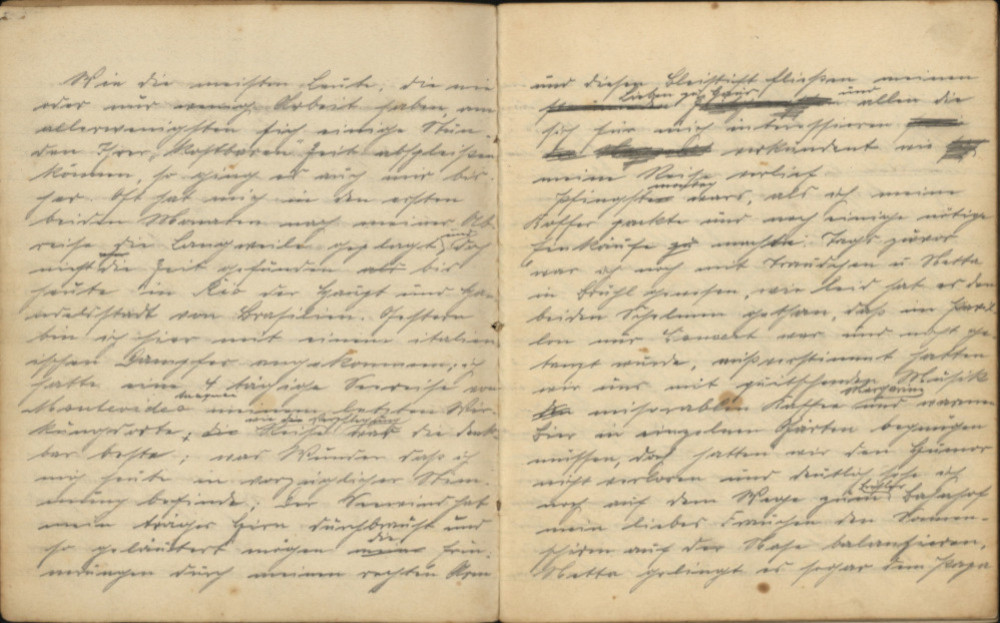 Wie die meisten Leute, die nie
oder nur wenig Arbeit haben, am
allerwenigsten sich einige Stun-
den Ihrer "kostbaren" Zeit abgleißen
können, so ging es auch mir bis-
her. Oft hat mich in den ersten
beiden Monaten nach meiner Ab-
reise die Langweile geplagt und doch
nicht die Zeit gefunden als bis
heute in Rio der Haupt und Han-
delsstadt von Brasilien. Gestern
bin ich hier mit einem italien-
ischen Dampfer angekommen; ich
hatte eine 4 tägige Seereise von
Montevideo meinem letzten Wir-
kungsorte, die Reise hat die denk-
bar beste; was Wunder daß ich
mich heute in vorzüglicher Stim-
mung befinde; der Seewind hat
mein träges Hirn durchbraust und
so geläutert mögen die Erin-
nerungen durch meinen rechten Arm
und diesen Bleistift fließen meinen
Lieben zu Haus und allen die
sich für mich interessieren
verkündent wie
meine Reise verlief
Pfingstmontag wars, als ich meine
Koffer packte und noch einige nötige
Einkäufe machte. Tags zuvor
war ich noch mit Traudchen u Netta
in Brühl gewesen, wie leid hat es den
beiden Schelmen gethan, daß im Pavil-
lon nur Concert war und nicht ge-
tanzt wurde, mißverstimmt hatten
wir uns mit quitschender Musik
miserablen Kaffee und warmen
Bier in einzelnen Gärten begnügen
müssen, doch hatten wir den Humor
nicht verloren und deutlich sehe ich
noch auf dem Wege zum Bahnhof
mein liebes Frauchen den Sonnen-
schirm auf der Nase balanzieren,
Netta gelingt es sogar dem Papa